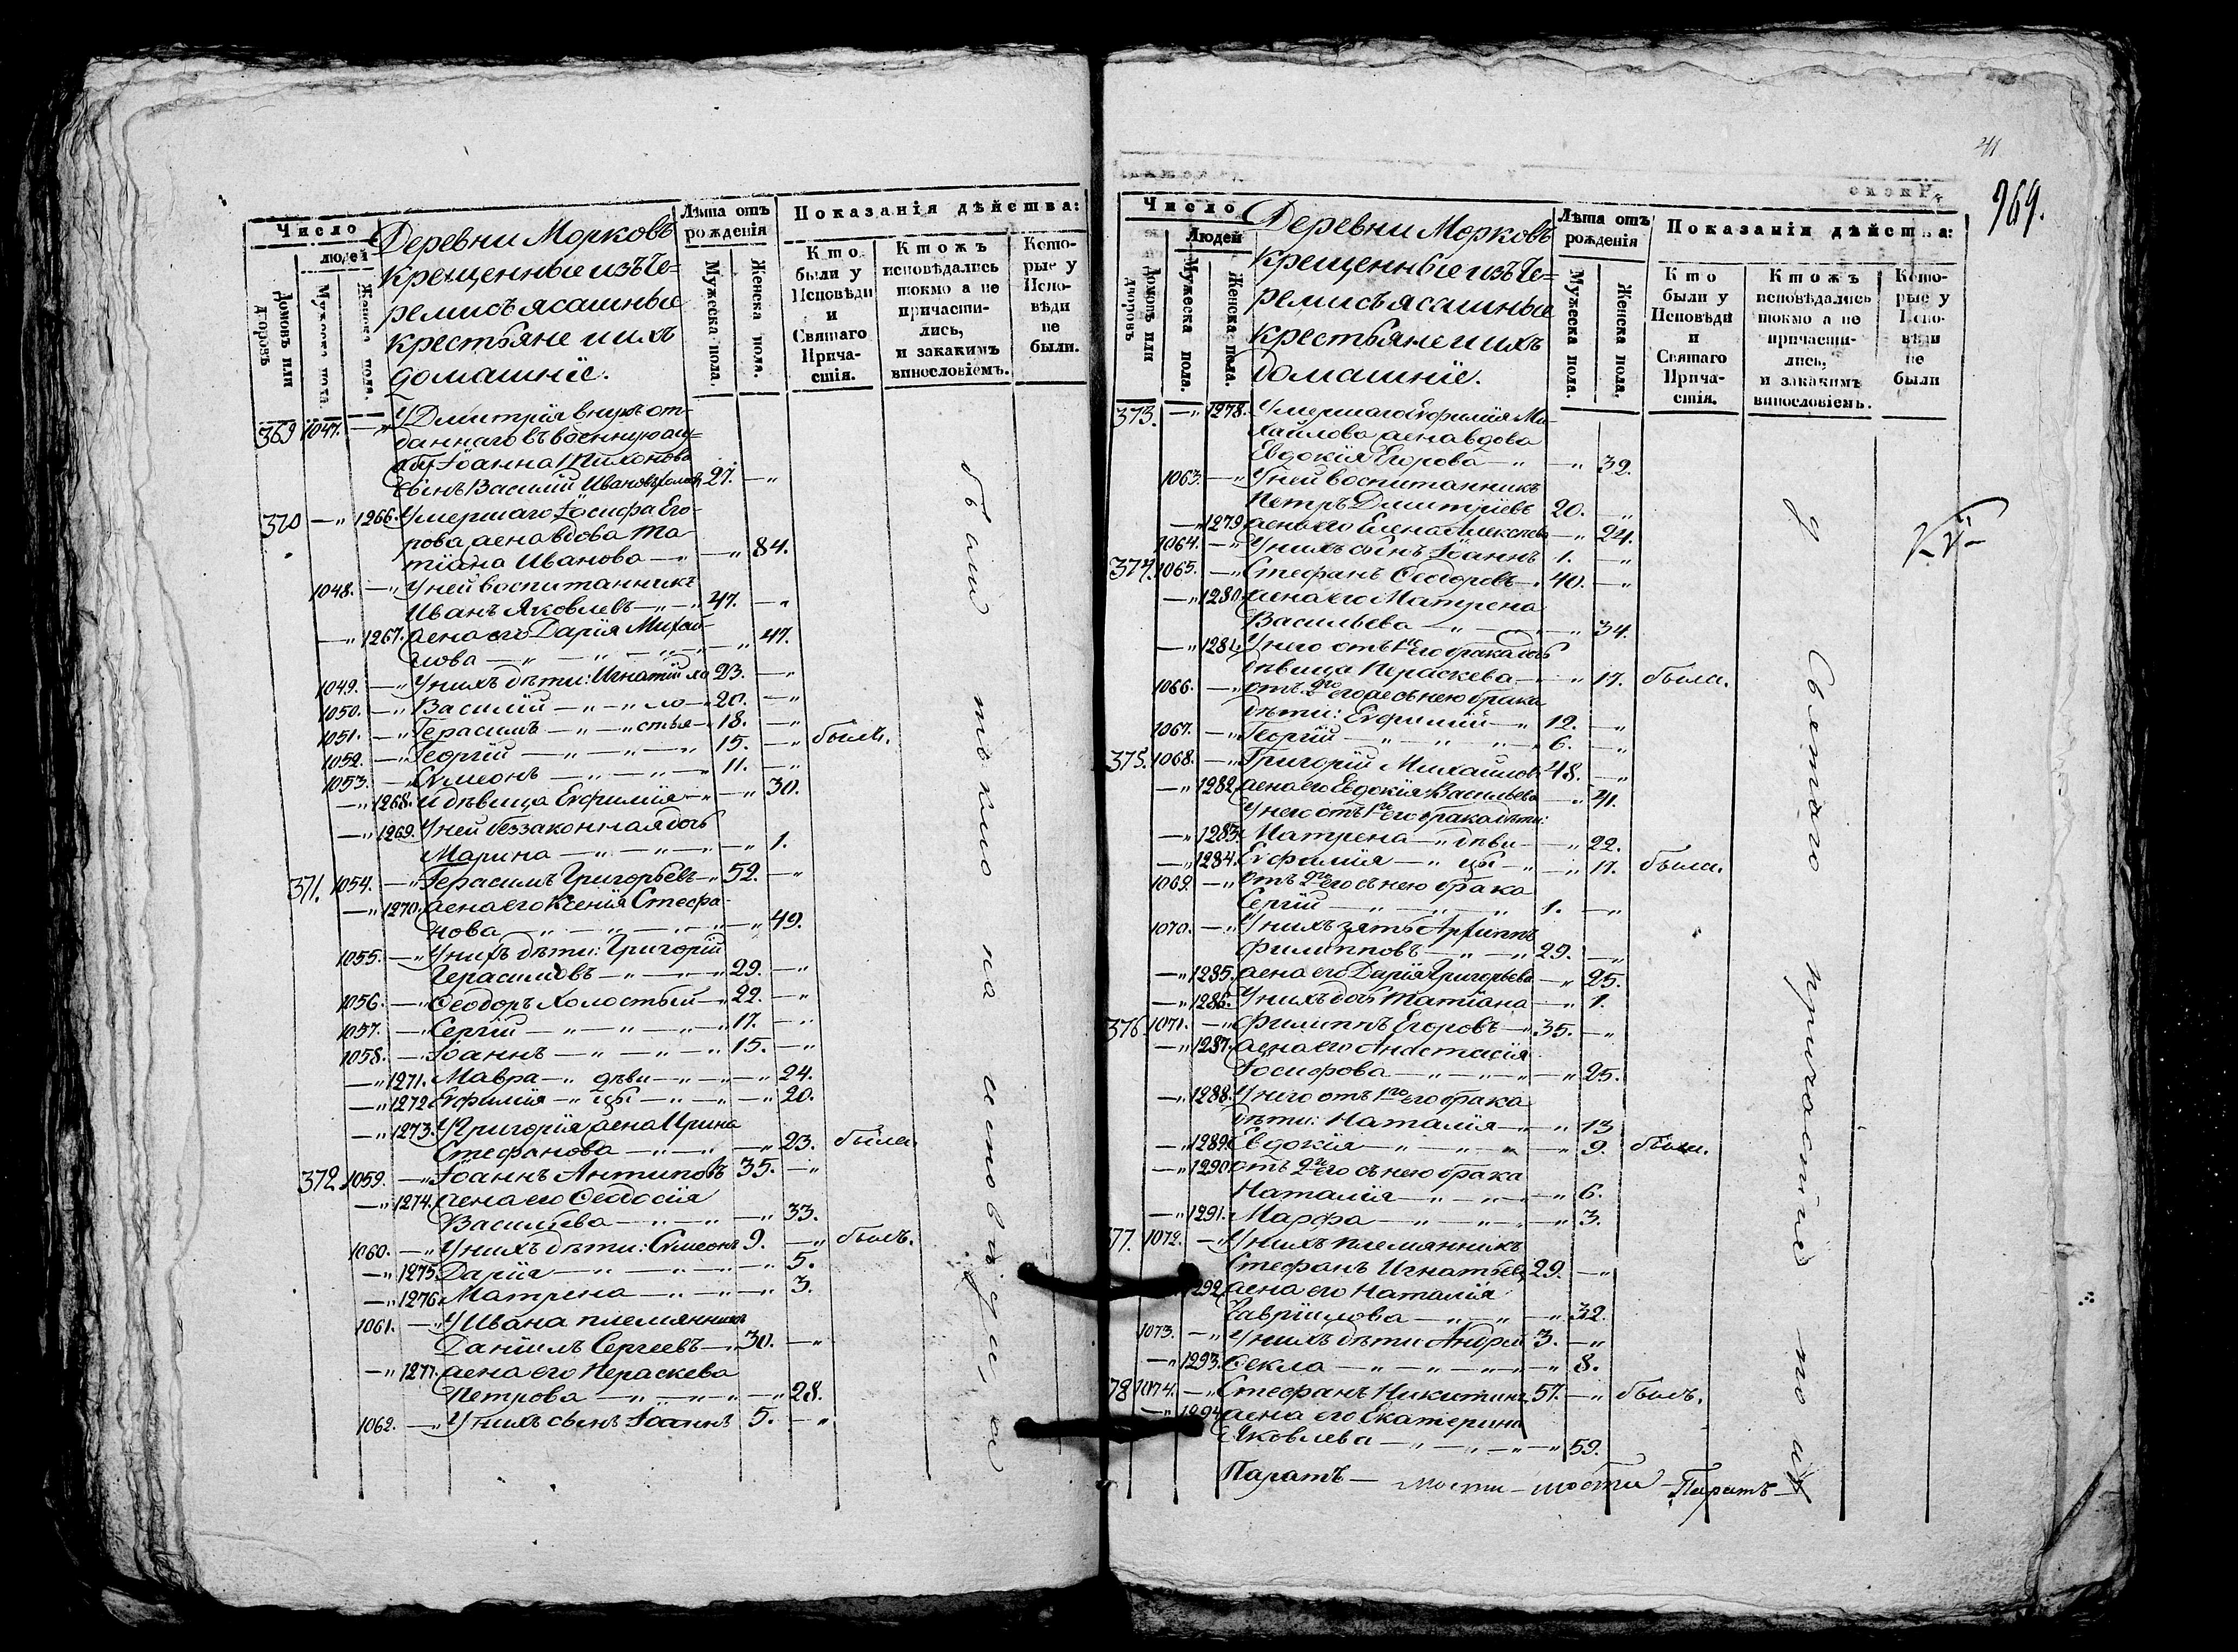 Число
людей
Домовъ или дворовъ
Мужеска пола.
Женска пола.
Деревни Морковъ
крещенные изъ че=
ремисъ ясашные
крестьяне и ихъ
домашніе.
Лѣта отъ рожденія
Мужеска пола.
Женска пола.
Показанія дѣйства:
Кто были у Исповѣди и Святаго Причастія.
Ктожъ исповѣдались токмо а не причастились, и закакимъ винословіемъ.
Которые у Исповѣди не были.
369 1047. — „ У Дмитрія внукъ от-
даннаго въ военную слу=
жбу Іоанна Тихонова
сынъ Василій Ивановъ холос 27. — „
370 — „ 1266. Умершаго Іосифа Его-
рова жена вдова Та-
тіана Иванова — „ — „ 84.
1048. — „ У ней воспитанникъ
Иванъ Яковлевъ — „ — „ 47. — „
— „ 1267. жена его Дарія Михай-
лова — „ — „ — „ — „ 47.
1049. — „ У нихъ дѣти: Игнатій хо 23. — „
1050. — „ Василій — „ — „ ло — „ 20. — „
1051. — „ Герасимъ — „ — „ стыя — „ 18. — „
1052. — „ Георгій — „ — „ — „ 15. — „ были.
1053. — „ Симеонъ — „ — „ — „ 11. — „
— „ 1268. и дѣвица Евфимія — „ — „ 30.
— „ 1269. У ней беззаконная дочь
Марина — „ — „ — „ — „ 1.
371. 1054. — „ Герасимъ Григорьевъ — „ 52. — „
— „ 1270. жена его Ксенія Стефа-
нова — „ — „ — „ — „ 49.
1055. — „ У нихъ дѣти: Григорій
Герасимовъ — „ — „ 29. — „
1056. — „ Ѳеодоръ холостый — „ 22. — „
1057. — „ Сергій — „ — „ — „ 17. — „
1058. — „ Іоаннъ — „ — „ — „ 15. — „
— „ 1271. Мавра — „ дѣви — „ — „ — „ 24.
— „ 1272. Евфимія — „ цы — „ — „ 20.
— „ 1273. У Григорія жена Ирина
Стефанова — „ — „ — „ 23. были
372 1059. — „ Іоаннъ Антиповъ 35. — „
— „ 1274. жена его Ѳеодосія
Васильева — „ — „ — „ 33.
1060. — „ У нихъ дѣти: Симеонъ 9. — „ былъ.
— „ 1275. Дарія — „ — „ — „ — „ 5.
— „ 1276. Матрена — „ — „ — „ 3.
1061. — „ У Ивана племянникъ
Даніилъ Сергеевъ — „ 30. — „
— „ 1277. жена его Пераскева
Петрова — „ — „ — „ 28.
1062. — „ У нихъ сынъ Іоаннъ 5. — „
были токмо на исповѣди, а
41
969.
Число
Людей
Домовъ или дворовъ
Мужеска пола.
Женска пола.
Деревни Морковъ
крещенные изъ че=
ремисъ ясашные
крестьяне и ихъ
домашніе.
Лѣта отъ рожденія
Мужеска пола.
Женска пола.
Показанія дѣйства:
Кто были у Исповѣди и Святаго Причастія.
Ктожъ исповѣдались токмо а не причастились, и закакимъ винословіемъ.
Которые у Исповѣди не были
373. — „ 1278. Умершаго Евфимія Ми-
хайлова жена вдова
Евдокія Егорова — „ — „ 32.
1063. — „ У ней воспитанникъ
Петръ Дмитріевъ 20. „
— „ 1279. жена его Елена Алексѣева — „ 24.
1064. — „ У нихъ сынъ Іоаннъ 1. — „
374. 1065. — „ Стефанъ Ѳеодоровъ — „ 40. — „
— „ 1280. жена его Матрена
Васильева — „ — „ 34.
— „ 1281. У него отъ 1го его брака дочь
дѣвица Пераскева — „ 17. были.
1066. — „ отъ 2го его же съ нею брака
дѣти: Евфимій — „ 12. — „
1067. — „ Георгій — „ — „ — „ 6. — „
375. 1068. — „ Григорій Михайловъ 48. — „
— „ 1282. жена его Евдокія Васильева — „ 41.
У него отъ 1го его брака дѣти:
— „ 1283. Матрена — „ дѣви — „ 22.
— „ 1284. Евфимія — „ цы — „ — „ 17. были.
1069. — „ отъ 2го его съ нею брака
Сергій — „ — „ — „ 1. — „
1070. — „ У нихъ зять
Филипповъ — „ — „ 29. — „
— „ 1285. жена его Дарія Григорьева — „ 25.
— „ 1286. У нихъ дочь Татіана — „ 1.
376 1071. — „ Филиппъ Егоровъ — „ 35. — „
— „ 1287. жена его Анастасія
Іосифова — „ — „ — „ 25.
— „ 1288. У него отъ 1го его брака
дѣти: Наталія — „ — „ 13
— „ 1289. Евдокія — „ — „ — „ 9. были.
— „ 1290. отъ 2го его съ нею брака
Наталія — „ — „ — „ 6.
— „ 1291. Марфа — „ — „ — „ 3.
77. 1072. — „ У нихъ племянникъ
Стефанъ Игнатьевъ 29. — „
292. жена его Наталія
Гавріилова — „ — „ — „ 32.
1073. — „ У нихъ дѣти Андрей 3. — „
— „ 1293. Ѳекла — „ — „ — „ — „ 8.
78 1074. — „ Стефанъ Никитинъ 57. — „ былъ.
— „ 1294. жена его Екатерина
Яковлева — „ — „ — „ 59.
у Святаго причастія